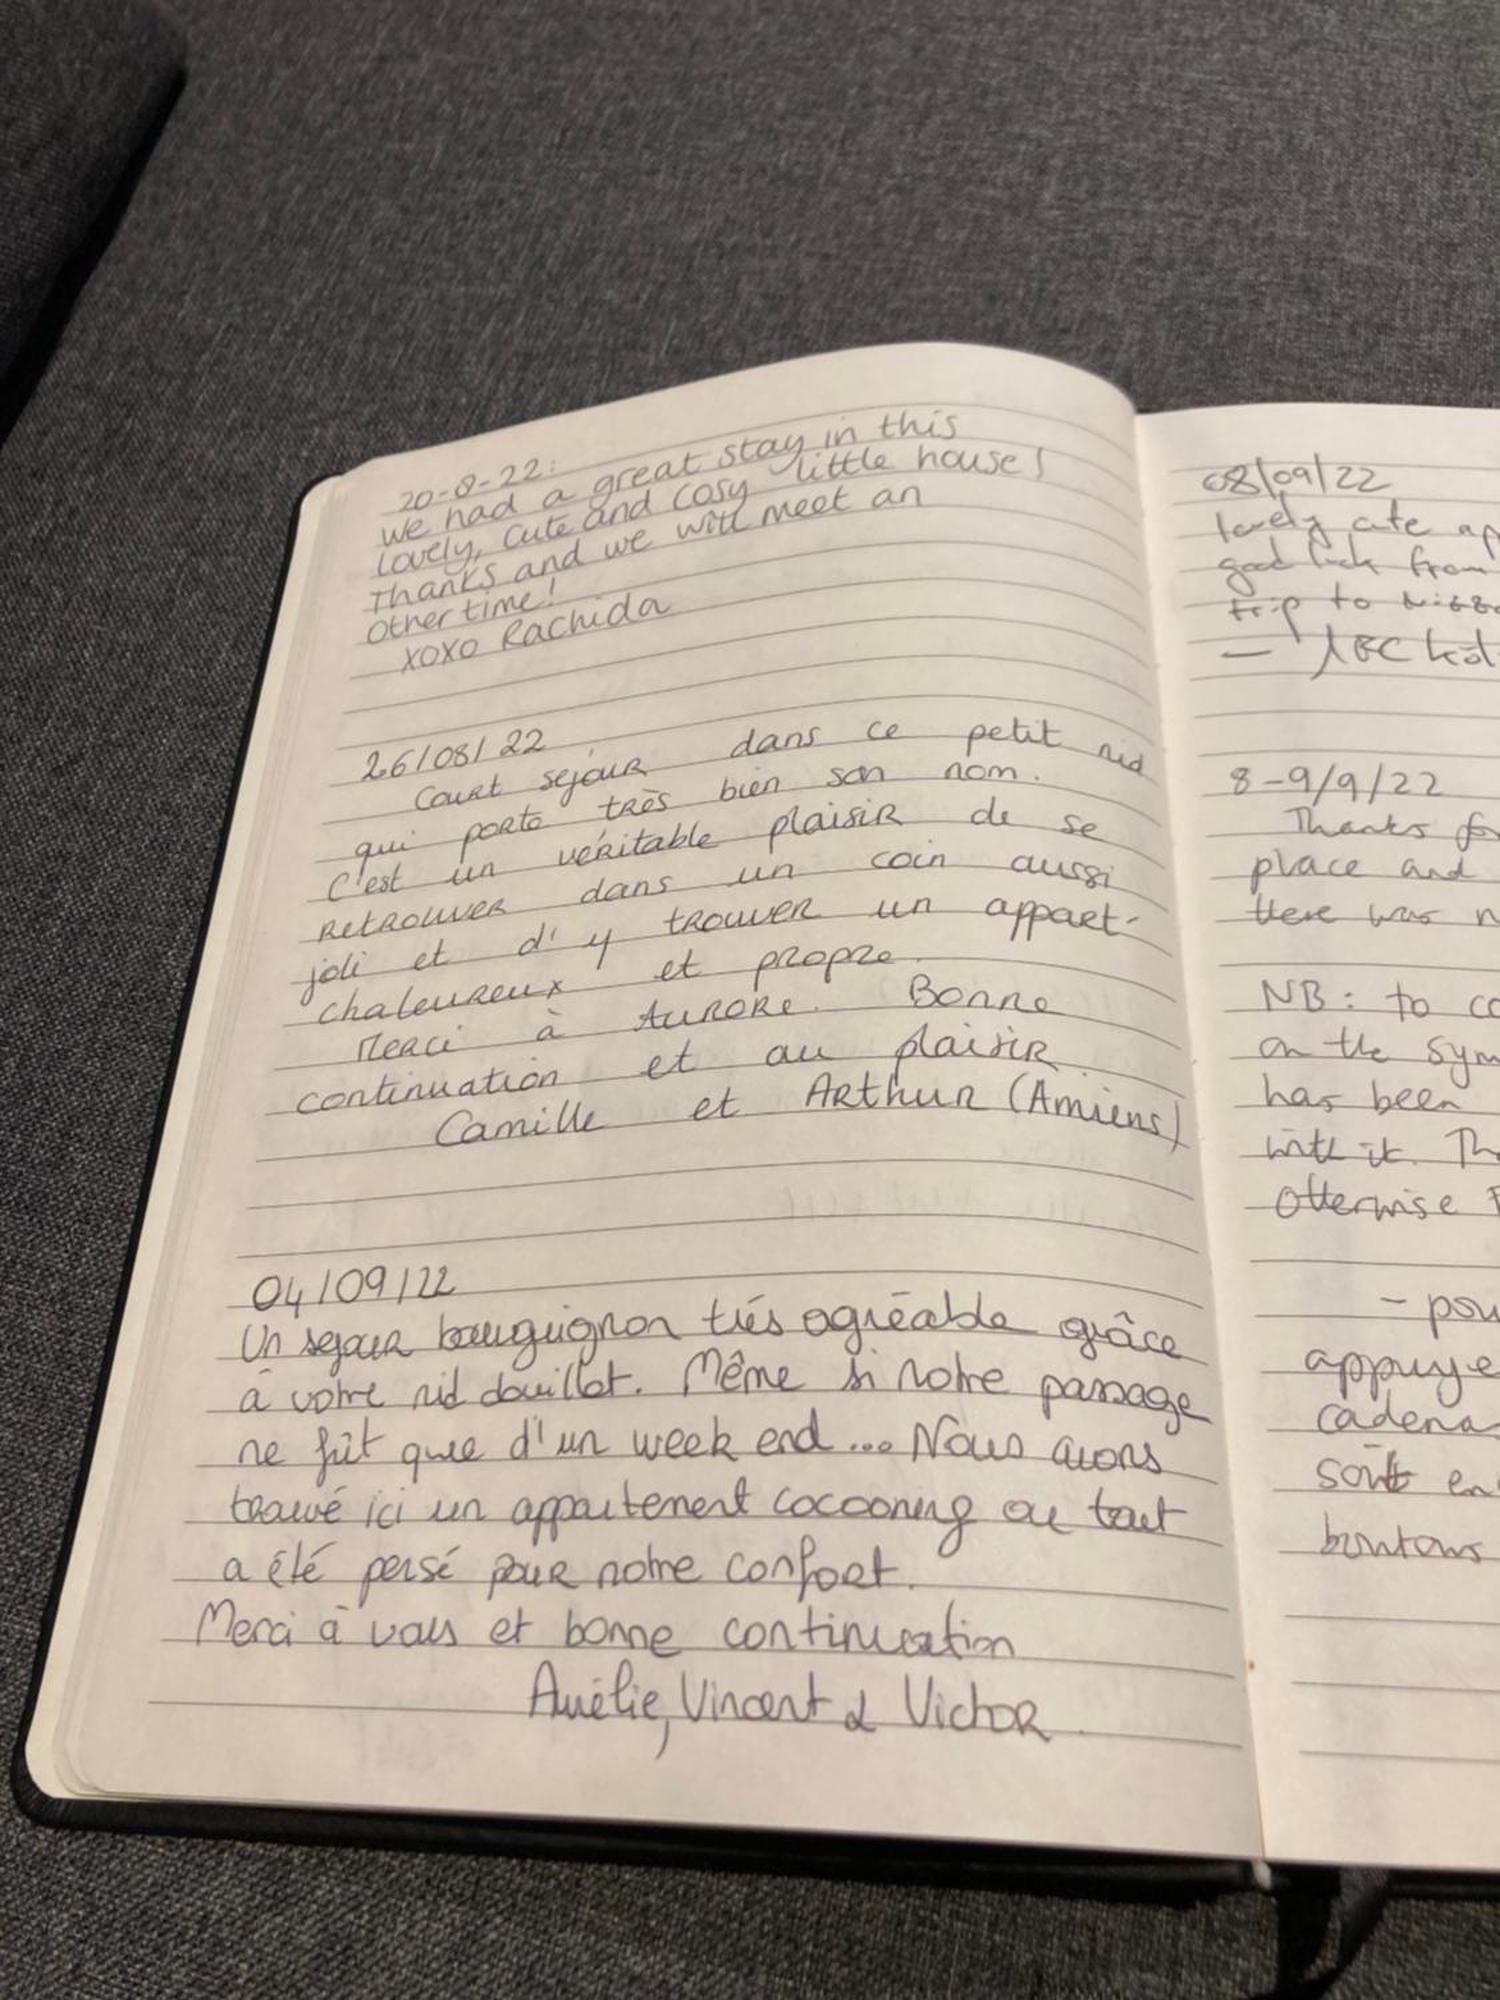 20-8-22:
we had a great stay in this
lovely, cute and cosy little house!
Thanks and we will meet an
other time!
xoxo Rachida
26/08/22
Court sejour dans ce petit nid
qui porte très bien son nom.
C'est un véritable plaisir de se
retrouver dans un coin aussi
joli et d'y trouver un appart-
chaleureux et propre.
Merci à Aurore. Bonne
continuation et au plaisir
Camille et Arthur (Amiens)
04/09/22
Un sejour bourguignon trés agréable grâce
à votre nid douillet. Même si notre passage
ne fût que d'un week end... Nous avons
trouvé ici un appartement cocooning ou tout
a été pensé pour notre confort.
Merci à vous et bonne continuation
Aurélie, Vincent & Victor
08/09/22
lovely cute ap
good luck from
trip to
— ABC
8-9/9/22
Thanks for
place and
there was n
NB: to co
on the sym
has been
with it. Th
Otherwise
- pou
appuye
cadena
sont en
boutons